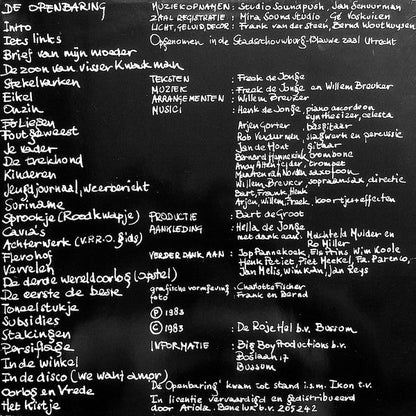 DE OPENBARING
Intro
Iets links
Brief van mijn moeder
De zoon van visser Kwakman
Stekelvarken
Eikel
Onzin
Foliesen
Fout geweest
Je vader
De trekhond
Kinderen
Jeugdjournaal, weerbericht
Suriname
Sprookje (Roodkapje)
Cavia's
Achterwerk (V.P.R.O. gids)
Flevohof
Vervelen
De derde wereldoorlog (apstel)
De eerste de beste
Toneelstukje
Subsidies
Stakingen
Persiflage
In de winkel
In de disco (we want amor)
Oorlog en Vrede
Het Kistje
MUZIEKOPNAMEN : Studio Soundpush, Jan Schuurman
ZAAL REGISTRATIE : Mira Soundstudio, Ge Voskuilen
LICHT, GELUID, DECOR : Frank van der Steen, Bernd Wouthuysen
Opgenomen in de Stadsschouwburg-Blauwe zaal Utrecht
TEKSTEN : Freek de Jonge
MUZIEK : Freek de Jonge en Willem Breuker
ARRANGEMENTEN : Willem Breuker
MUSICI : Henk de Jonge, piano accordeon
synthesizer, celesta
Arjen Gorter, basgitaar
Rob Verdurmen, slagwerk en percussie
Jan de Hont, gitaar
Bernard Hunnekink, trombone
Andy Altenfelder, trompet
Maarten van Norden, saxofoon
Willem Breuker, sopraansax, directie
Bart, Frank, Henk
Arjen, Willem, Freek, koortje + effecten
PRODUCTIE : Bart de Groot
AANKLEDING : Hella de Jonge
met dank aan: Machteld Mulder en
Ro Miller
VERDER DANK AAN : Jop Pannekoek, Els Prins, Wim Koole
Henk Petiet, Piet Meekel, Fa. Parténco,
Jan Melis, Wim Kan, Jan Reys
grafische vormgeving : Charlotte Fischer
foto : Frank en Bernd
Ⓟ 1983
© 1983 : De Roje Hel b.v. Bussum
INFORMATIE : Big Boy Productions b.v.
Boslaan 17
Bussum
'De Openbaring' kwam tot stand i.s.m. Ikon t.v.
In licentie vervaardigd en gedistribueerd
door Ariola. Benelux b.v. 205242